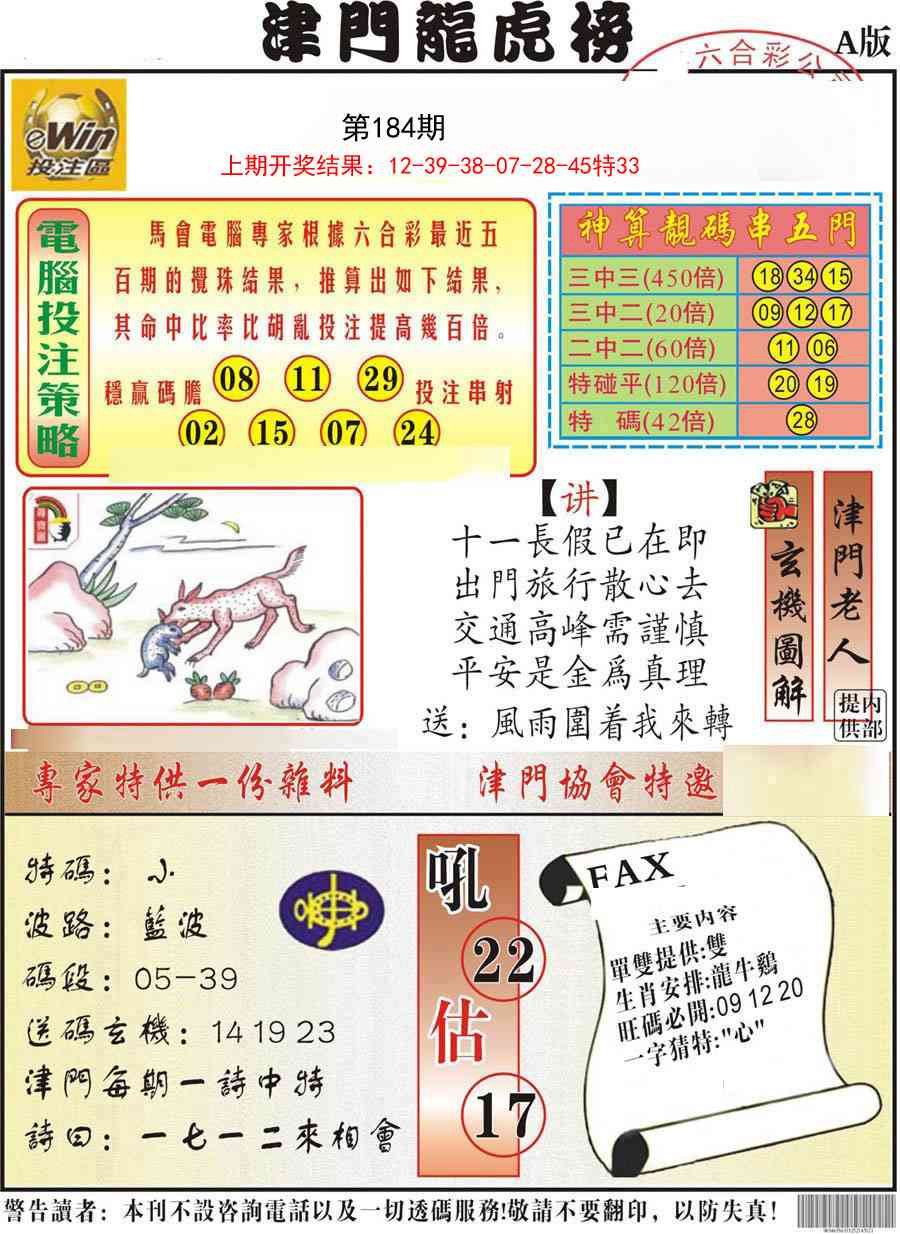 津門龍虎榜
A版
六合彩公
eWin
投注區
第184期
上期开奖结果：12-39-38-07-28-45特33
電腦投注策略
馬會電腦專家根據六合彩最近五
百期的攪珠结果，推算出如下结果，
其命中比率比胡亂投注提高幾百倍。
穩赢碼膽 08 11 29 投注串射
02 15 07 24
神算靚碼串五門
三中三(450倍) 18 34 15
三中二(20倍) 09 12 17
二中二(60倍) 11 06
特碰平(120倍) 20 19
特 碼(42倍) 28
尋寶圖
【讲】
十一長假已在即
出門旅行散心去
交通高峰需謹慎
平安是金爲真理
送：風雨圍着我來轉
玄機圖解
津門老人
内部提供
專家特供一份雜料
津門協會特邀
特碼：小
波路：藍波
碼段：05-39
送碼玄機：14 19 23
津門每期一詩中特
詩曰：一七一二來相會
吼
22
估
17
FAX
主要内容
單雙提供:雙
生肖安排:龍牛鷄
旺碼必開:09 12 20
一字猜特:"心"
警告讀者：本刊不設咨詢電話以及一切透碼服務!敬請不要翻印，以防失真!